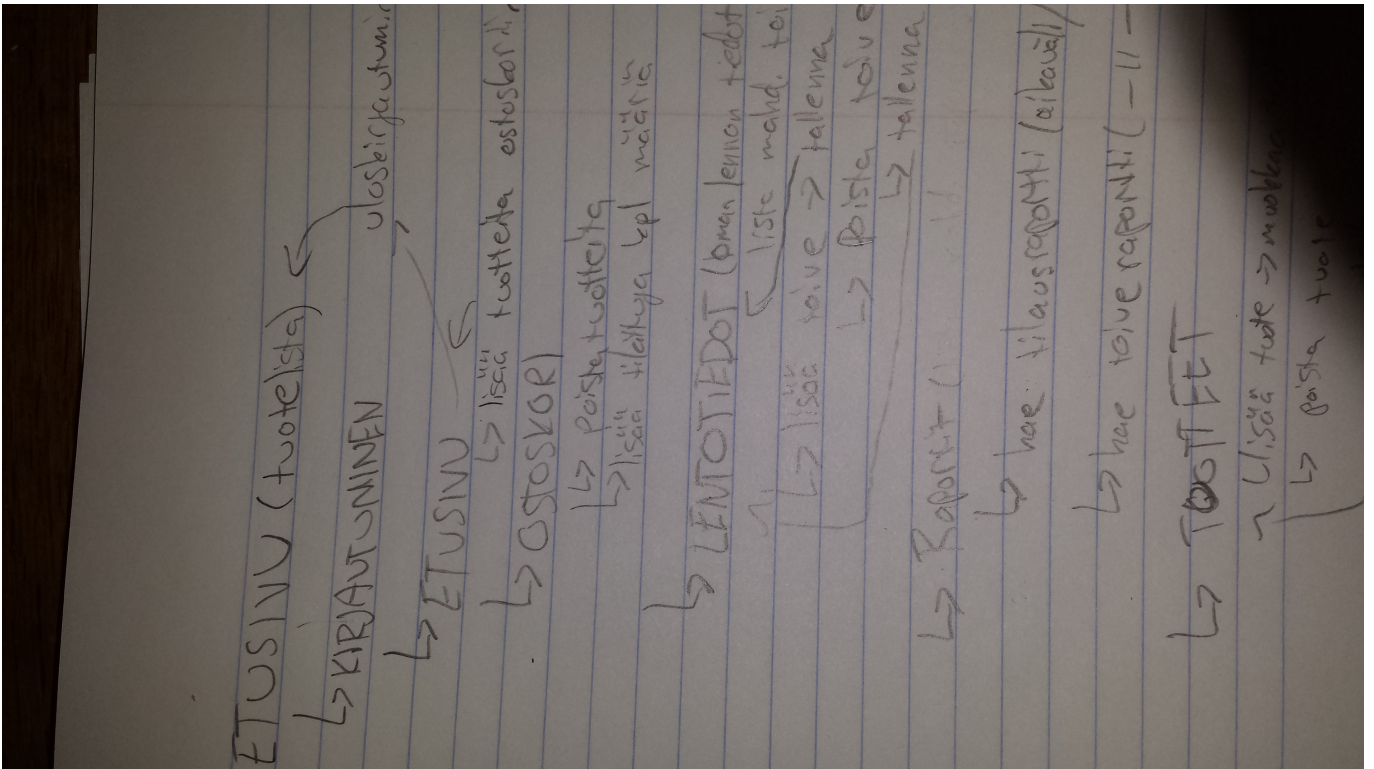 ETUSIVU (tuotelista)
↳ KIRJAUTUMINEN uloskirjautumin
↳ ETUSIVU
↳ lisää tuotteita ostoskorii
↳ OSTOSKORI
↳ poista tuotteita
↳ lisää tilattuja kpl määriä
↳ LENTOTIEDOT (oman lennon tiedot
lista mahd. toi
↳ lisää toive → tallenna
↳ poista toive
↳ tallenna
↳ Raportit (
↳ hae tilausraportti (aikaväli/
↳ hae toiveraportti ( -11-
↳ TUOTTEET
lisää tuote →
↳ poista tuote